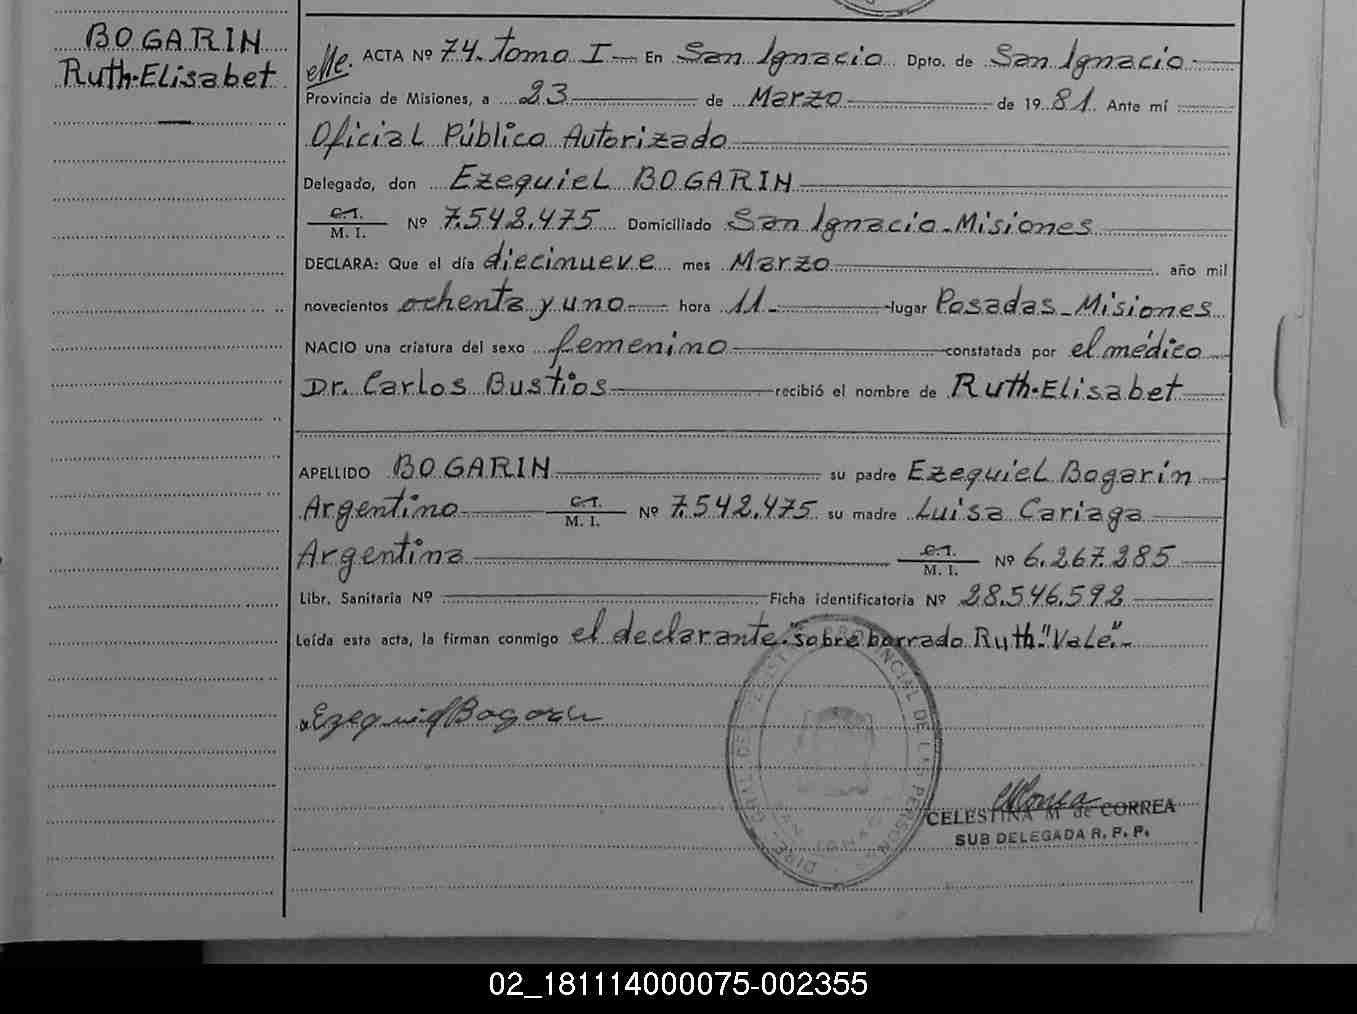 BOGARIN
Ruth-Elisabet
ACTA Nº 74. Tomo I — En San Ignacio Dpto. de San Ignacio
Provincia de Misiones, a 23 de Marzo de 1981. Ante mí
Oficial Público Autorizado
Delegado, don Ezequiel BOGARIN
C.I.
M. I. Nº 7.542.475 Domiciliado San Ignacio-Misiones
DECLARA: Que el día diecinueve mes Marzo año mil
novecientos ochenta y uno hora 11- lugar Posadas-Misiones
NACIO una criatura del sexo femenino constatada por el médico
Dr. Carlos Bustios recibió el nombre de Ruth-Elisabet
APELLIDO BOGARIN su padre Ezequiel Bogarin
Argentino C.I. M. I. Nº 7.542.475 su madre Luisa Cariaga
Argentina C.I. M. I. Nº 6.267.285
Libr. Sanitaria Nº Ficha identificatoria Nº 28.546.592
Leída esta acta, la firman conmigo el declarante."sobre borrado Ruth."Vale".-
Ezequiel Bogarin
DIREC. GRAL. DEL REGISTRO PROVINCIAL DE LAS PERSONAS
SAN IGNACIO
CELESTINA M de CORREA
SUB DELEGADA R. P. P.
02_181114000075-002355